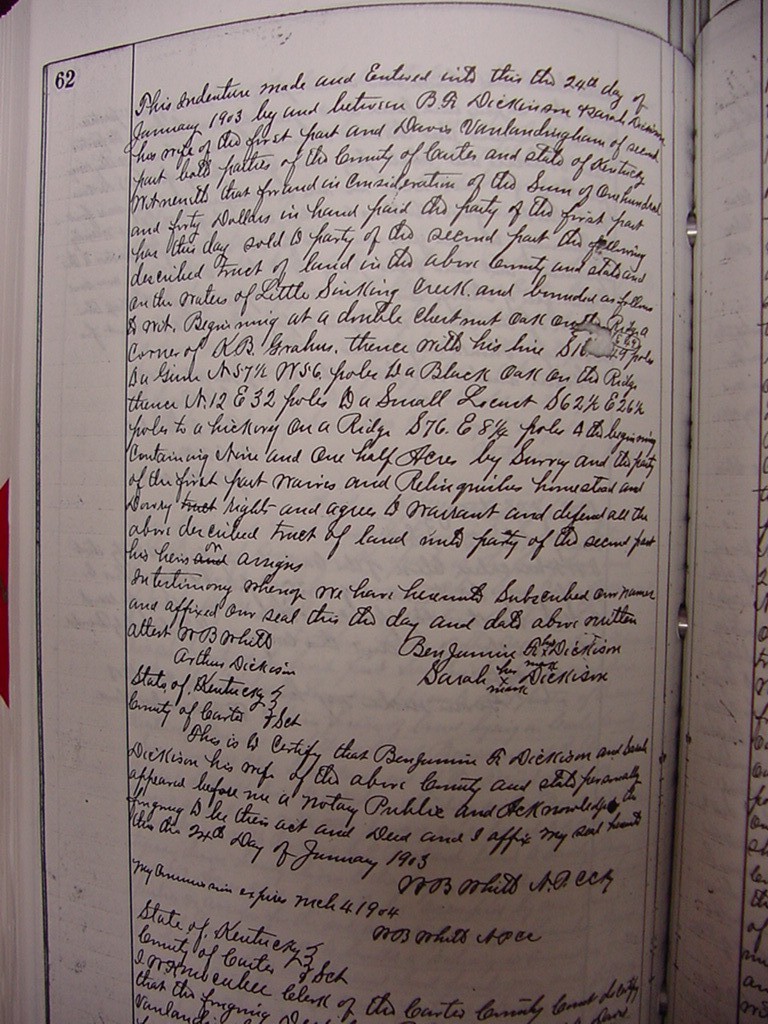 62
This Indenture made and Entered into this the 24th day of
January 1903 by and between B.R Dickinson & Sarah Dickison
his wife of the first part and Davis Vanlandingham of second
part both parties of the County of Carter and state of Kentucky
Witnesseth that for and in Consideration of the Sum of One hundred
and forty Dollars in hand paid the party of the first part
has this day sold to party of the second part the following
described tract of land in the above County and state and
on the waters of Little Sinking Creek. and bounded as follows
to wit. Beginning at a double Chestnut Oak on the Ridge a
Corner of K.B. Grahns. thence with his line S16 49 poles
to a Gum N 57½ W 56. poles to a Black Oak on the Ridge
thence N. 12 E 32 poles to a Small Locust S 62½ E 26½
poles to a hickory On a Ridge S 76. E 8¼ poles to the beginning
Containing Nine and One half Acres by Survy and the party
of the first part waives and Relinquishes homestead and
Dowry tract right and agrees to warrant and defend all the
above described tract of land unto party of the second part
his heirs and or assigns
In testimony whereof we have hereunto Subscribed our names
and affixed our seal this the day and date above written
attest W B Whitt Benjamine R his x Dickison
Arthur Dickison mark
Sarah her x mark Dickison
State of Kentucky }
County of Carter } Sct
This is to Certify that Benjamine R Dickison and Sarah
Dickison his wife of the above County and state personally
appeared before me a Notary Public and Acknowledge the
forgoing to be their act and Deed and I affix my seal hereto
this the 24th Day of January 1903
W B Whitt N.P.CCKy
my Commission expires Mch 4 1904
W B Whitt N P CC
State of Kentucky }
County of Carter } Sct
I. Clerk of the Carter County Court do certify
that the forgoing Deed
Vanlandi